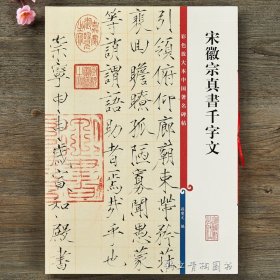 宋徽宗真書千字文
彩色放大本中國著名碑帖
編
引領俯仰廊廟束帶矜莊
瞻眺孤陋寡聞愚蒙
等誚謂語助者焉哉乎也
崇寧甲申歲宣和殿書